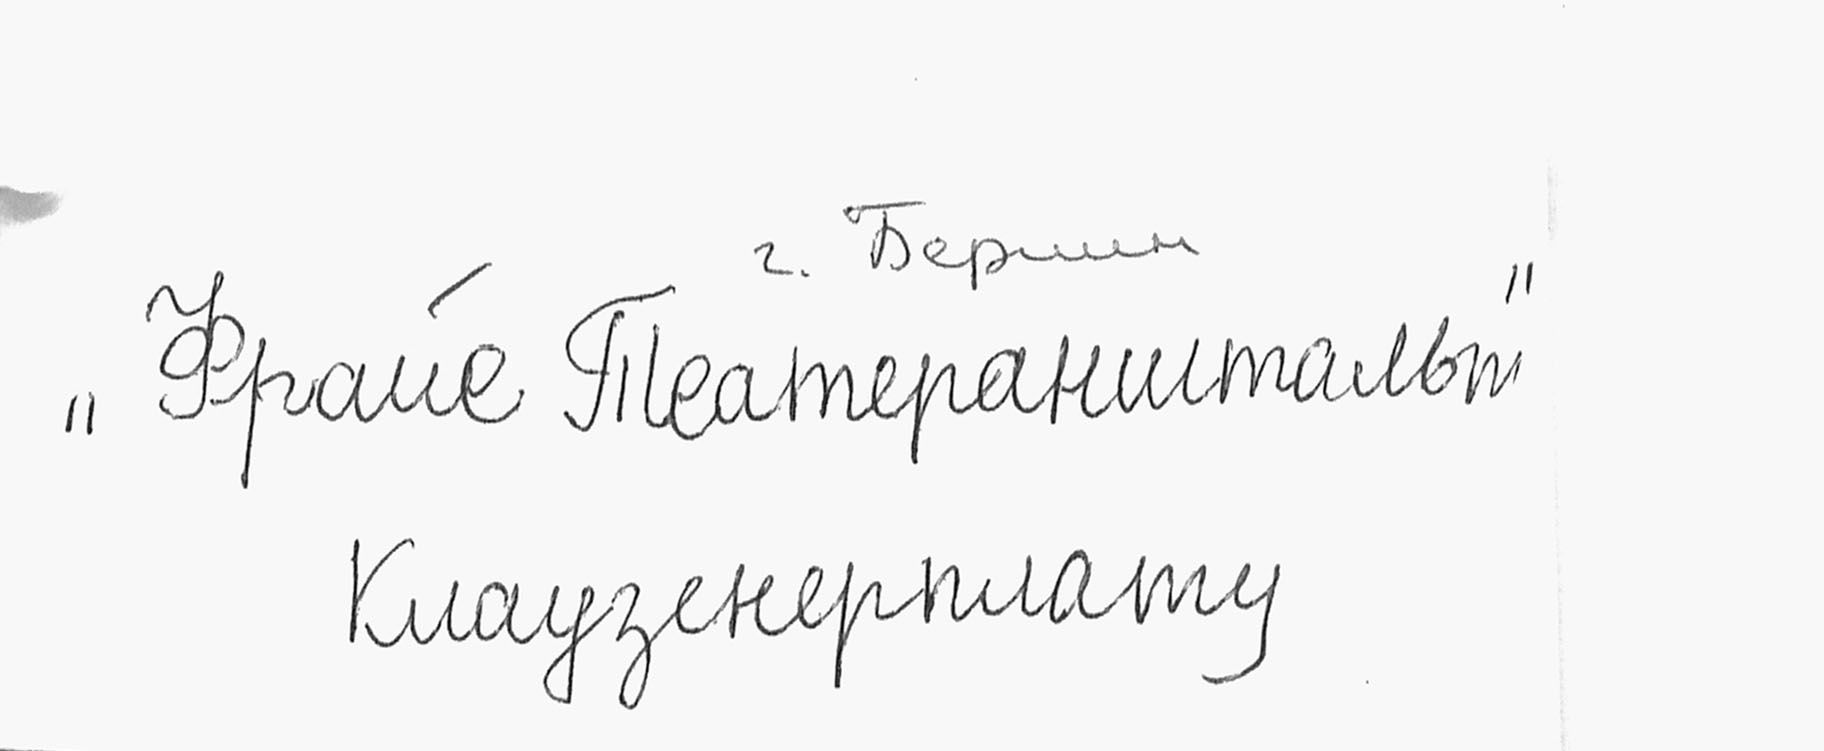 г. Берлин
„Фрайе Театеранштальт"
Клаузенерплатц